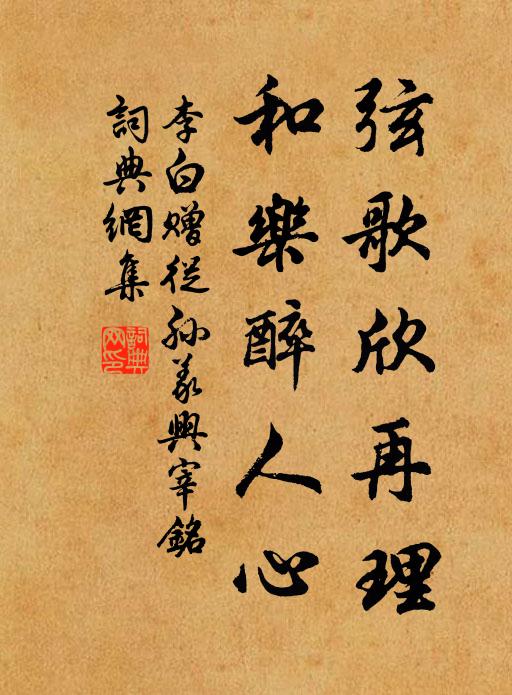 弦歌欣再理
和樂醉人心
李白贈從孫義興宰銘
詞典網集
詞典网印